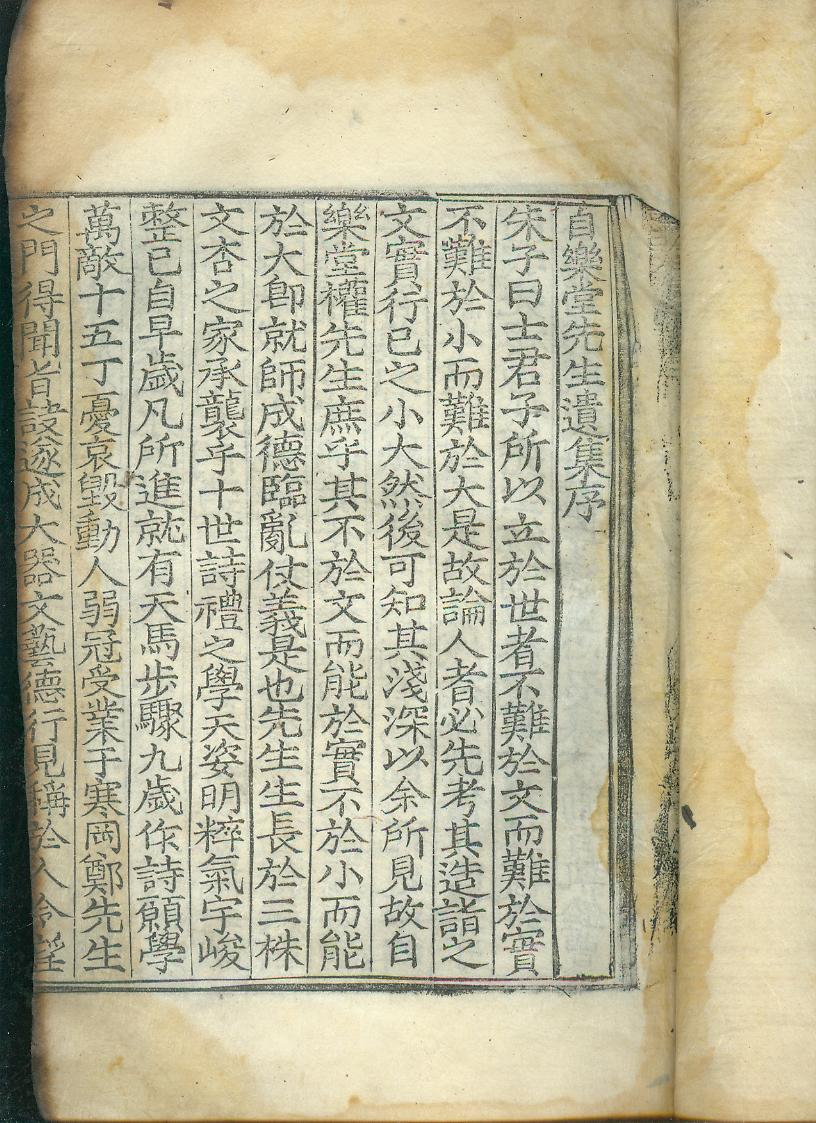 自樂堂先生遺集序
朱子曰士君子所以立於世者不難於文而難於實
不難於小而難於大是故論人者必先考其造詣之
文實行已之小大然後可知其淺深以余所見故自
樂堂權先生庶乎其不於文而能於實不於小而能
於大卽就師成德臨亂仗義是也先生生長於三株
文杏之家承襲乎十世詩禮之學天姿明粹氣宇峻
整已自早歲凡所進就有天馬步驟九歲作詩願學
萬敵十五丁憂哀毀動人弱冠受業于寒岡鄭先生
之門得聞旨訣遂成大器文藝德行見稱於人令望